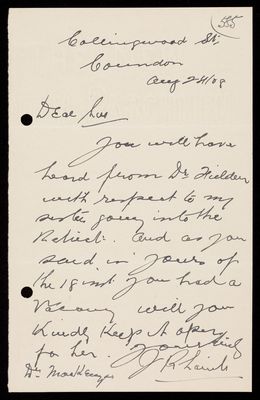 555
Collingwood St
Coundon
Aug 24/08
Dear Sir
You will have
heard from Dr Fielden
with respect to my
sister going into the
Retreat. And as you
said in yours of
the 18 inst you had a
Vacancy will you
Kindly Keep it open
for her. Yours truly
J R
Dr Mackenzie